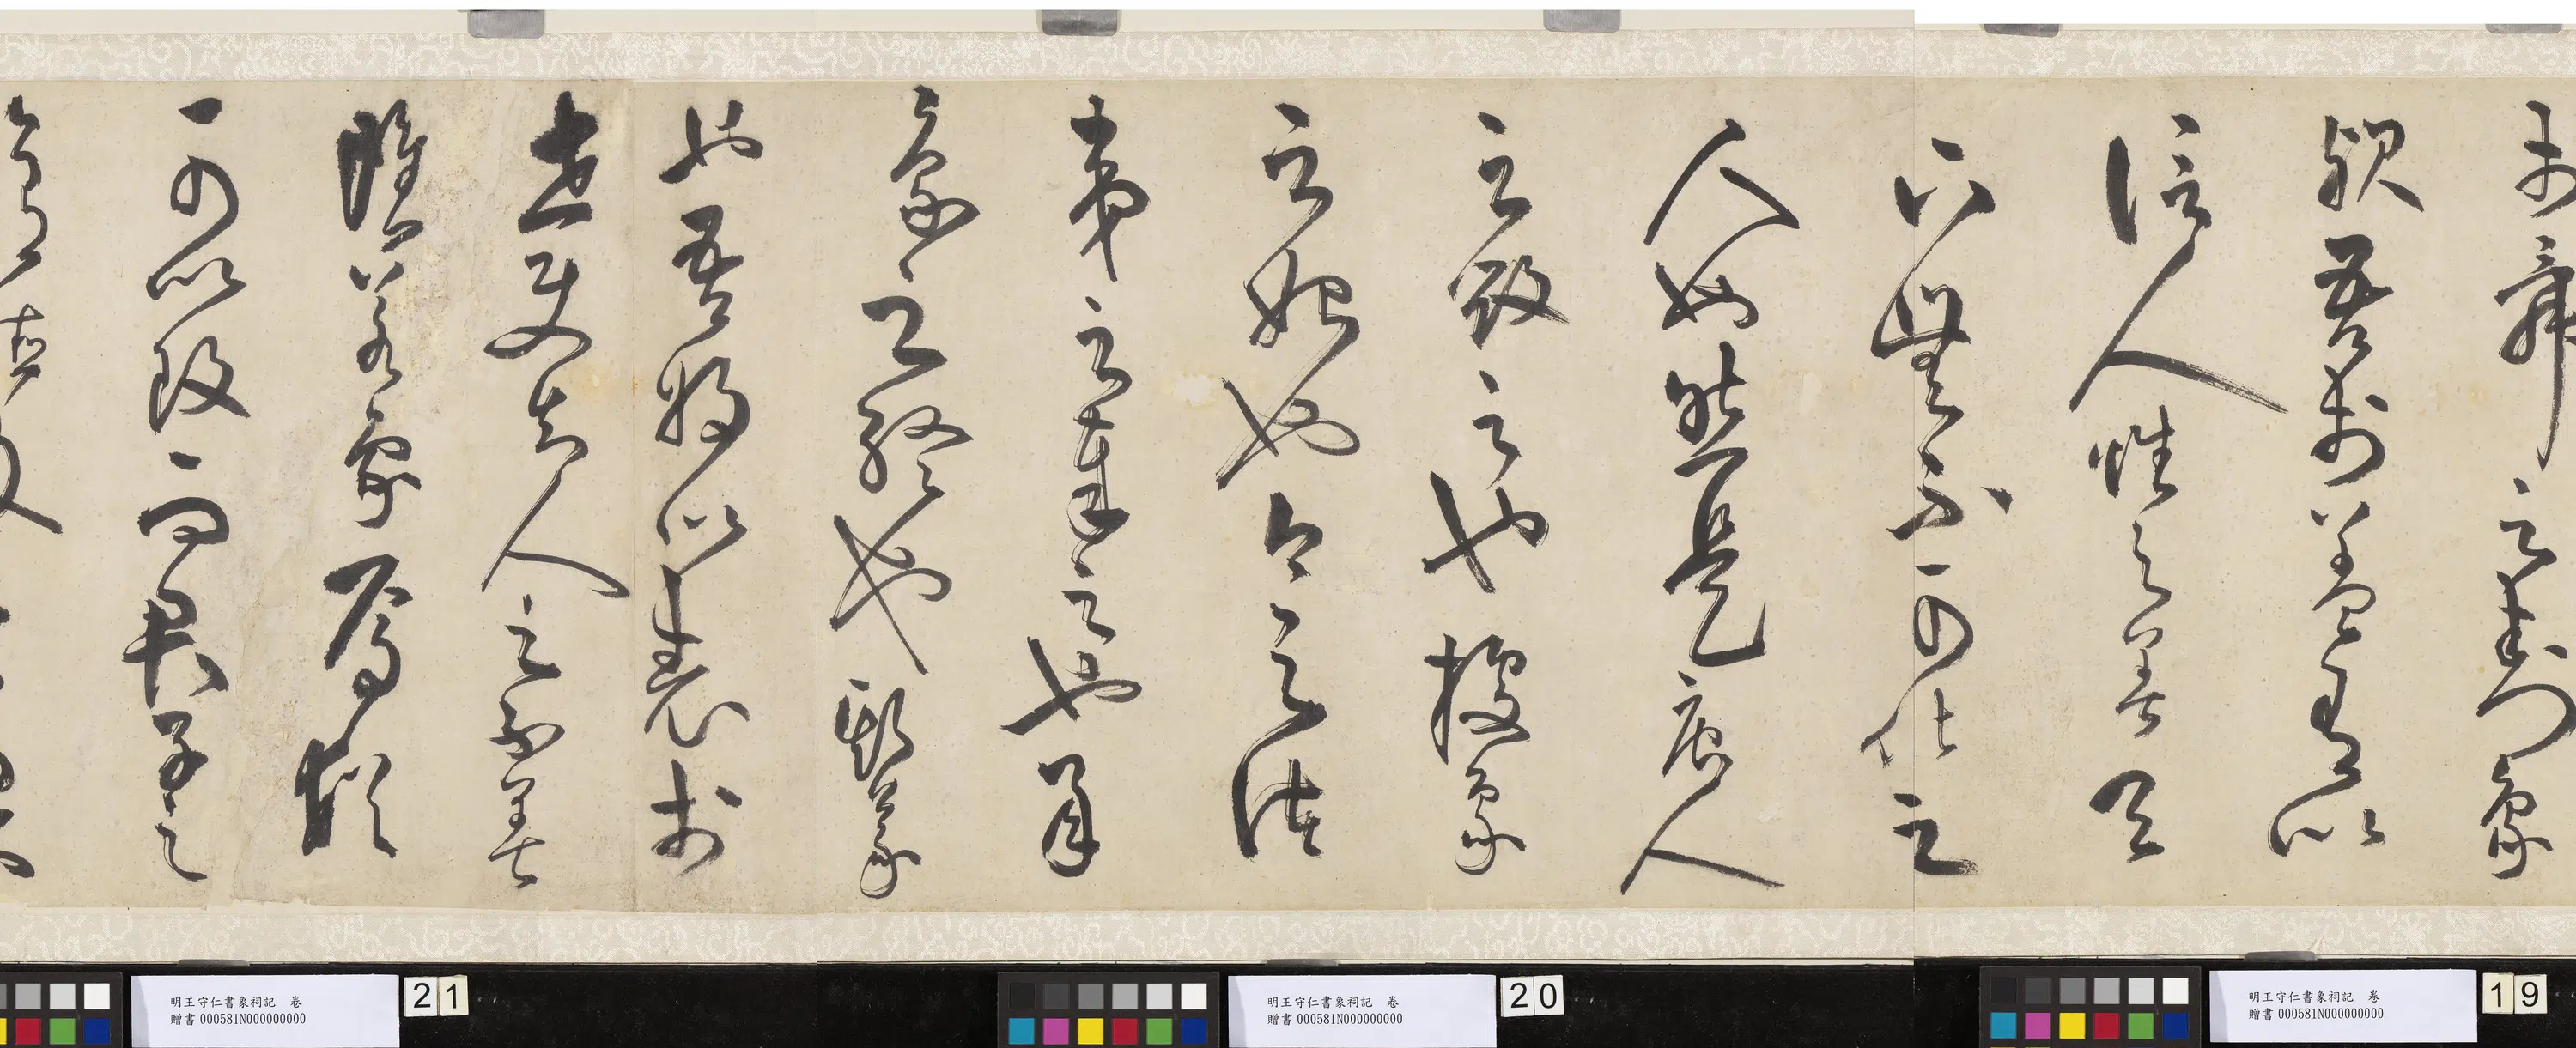 於舜之封象
歟吾於蓋有以
信人性之善天
下無不可化之
人也然則唐人
之毀之也據象
之始也今之諸
夷之奉之也承
象之終也斯義
也吾將以表於
世使知人之不善
雖若象焉猶
可以改而君子之
明王守仁書象祠記 卷
贈書 000581N000000000
19
明王守仁書象祠記 卷
贈書 000581N000000000
20
明王守仁書象祠記 卷
贈書 000581N000000000
21